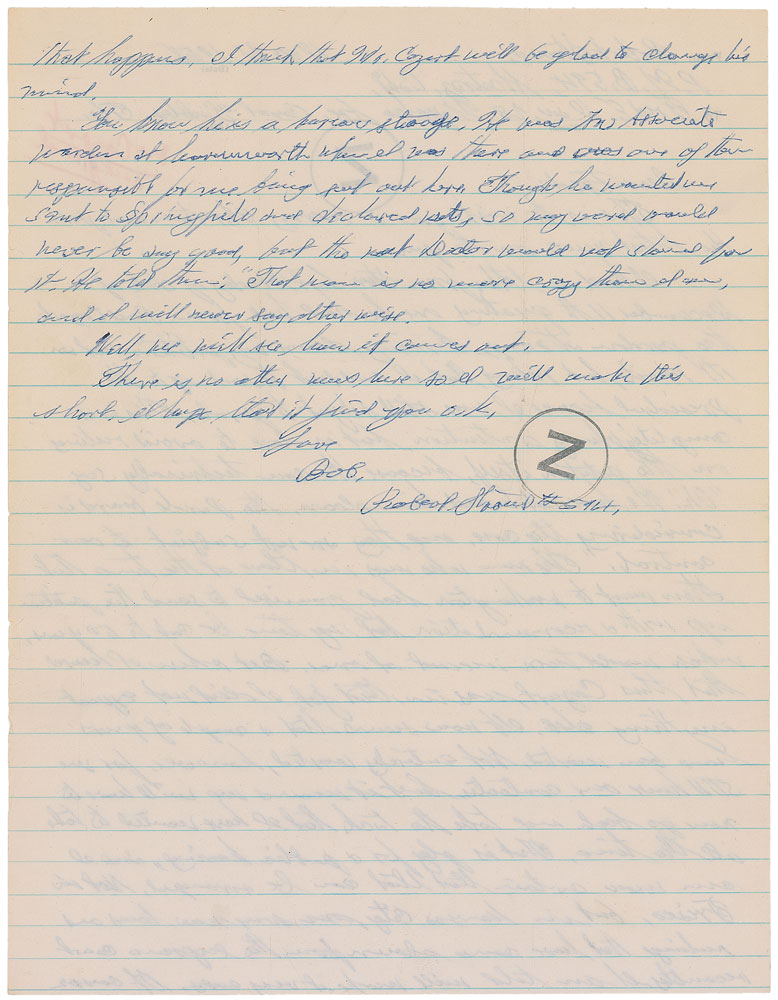 that happens, I think that Mr. Cozart will be glad to change his
mind.
You know he is a bureau stooge. He was the Associate
warden at Leavenworth when I was there and was one of them
responsible for me being put out here. Though he wanted me
sent to Springfield and declared nuts, so my word would
never be any good, but the nut Doctor would not stand for
it. He told them; "That man is no more crazy than I am,
and I will never say other wise.
Well, we will see how it comes out.
There is no other news here so I will make this
short. I hope that it find you o.k.
Love
Bob,
Robert Stroud #594,
N